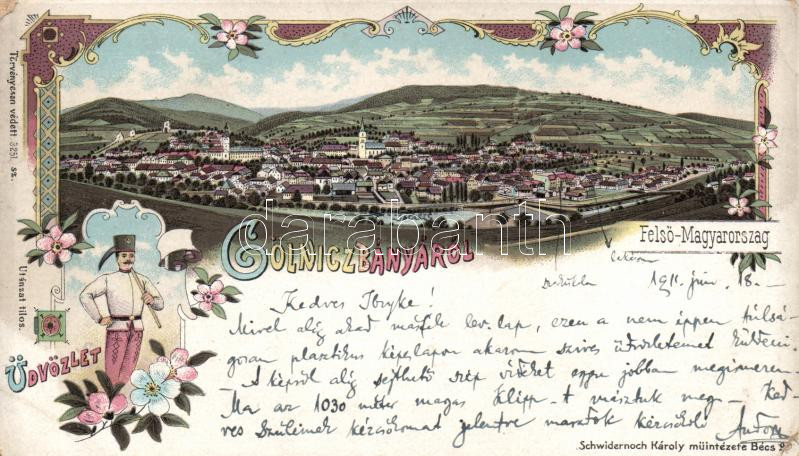 Törvényesen védett 3251. sz.
Utánzat tilos.
GÖLNICZBÁNYÁRÓL
Felső-Magyarország
ÜDVÖZLET
1911. jún. 18.-
Kedves Ibryke!
Mivel alig akad másfék lev. lap, ezen a nem éppen túlsá-
gosan plasztikus képeslapon akarom szives üdvözletemet küldeni.
A képről alig sejthető szép vidéket egyre jobban megismerem.
Ma az 1030 méter magas Klipp-t másztuk meg. - Ked-
ves Szüleinek kézcsókomat jelentve maradok kézcsókoló Andor
Schwidernoch Károly müintézete Bécs
darabanth